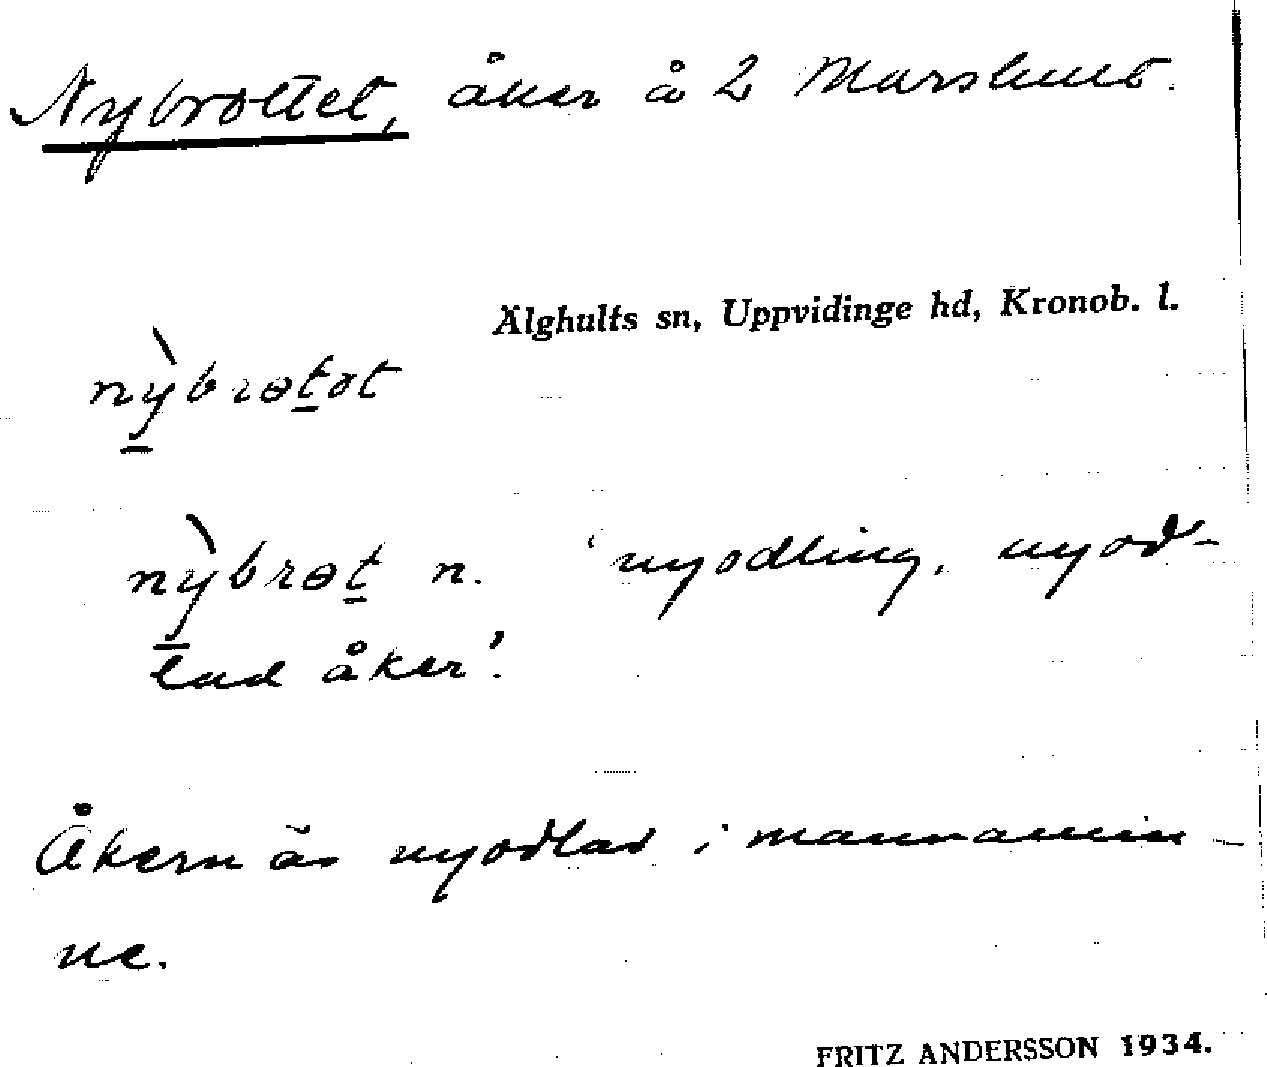 Nybrottet, åker å 2 Marshult.
Älghults sn, Uppvidinge hd, Kronob. l.
nỳbrɵtət
nỳbrɵt n. 'nyodling, nyod-
lad åker'.
Åkern är nyodlad i mannamin
ne.
FRITZ ANDERSSON 1934.